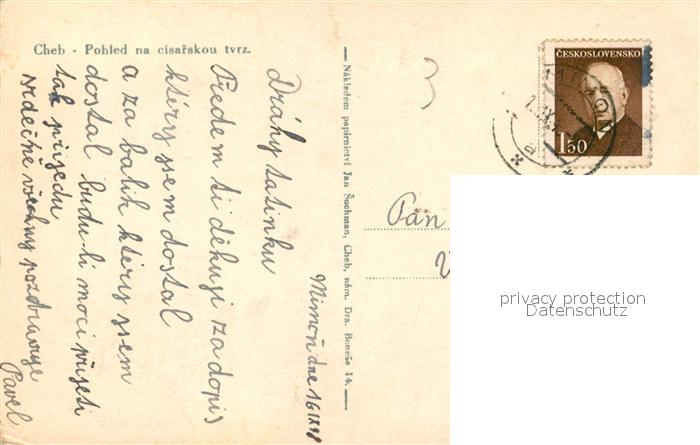 Cheb - Pohled na císařskou tvrz.
Mimoň dne 16 IX 48
Drahý tatínku
Předem ti děkuji za dopis
který jsem dostal
a za balík který jsem
dostal budu-li moci přijeti
tak přijedu
srdečně všechny pozdravuje
Pavel
Nákladem papírnictví Jan Suchman, Cheb, nám. Dra. Beneše 14.
3
ČESKOSLOVENSKO
1.50
Pan
V
privacy protection
Datenschutz